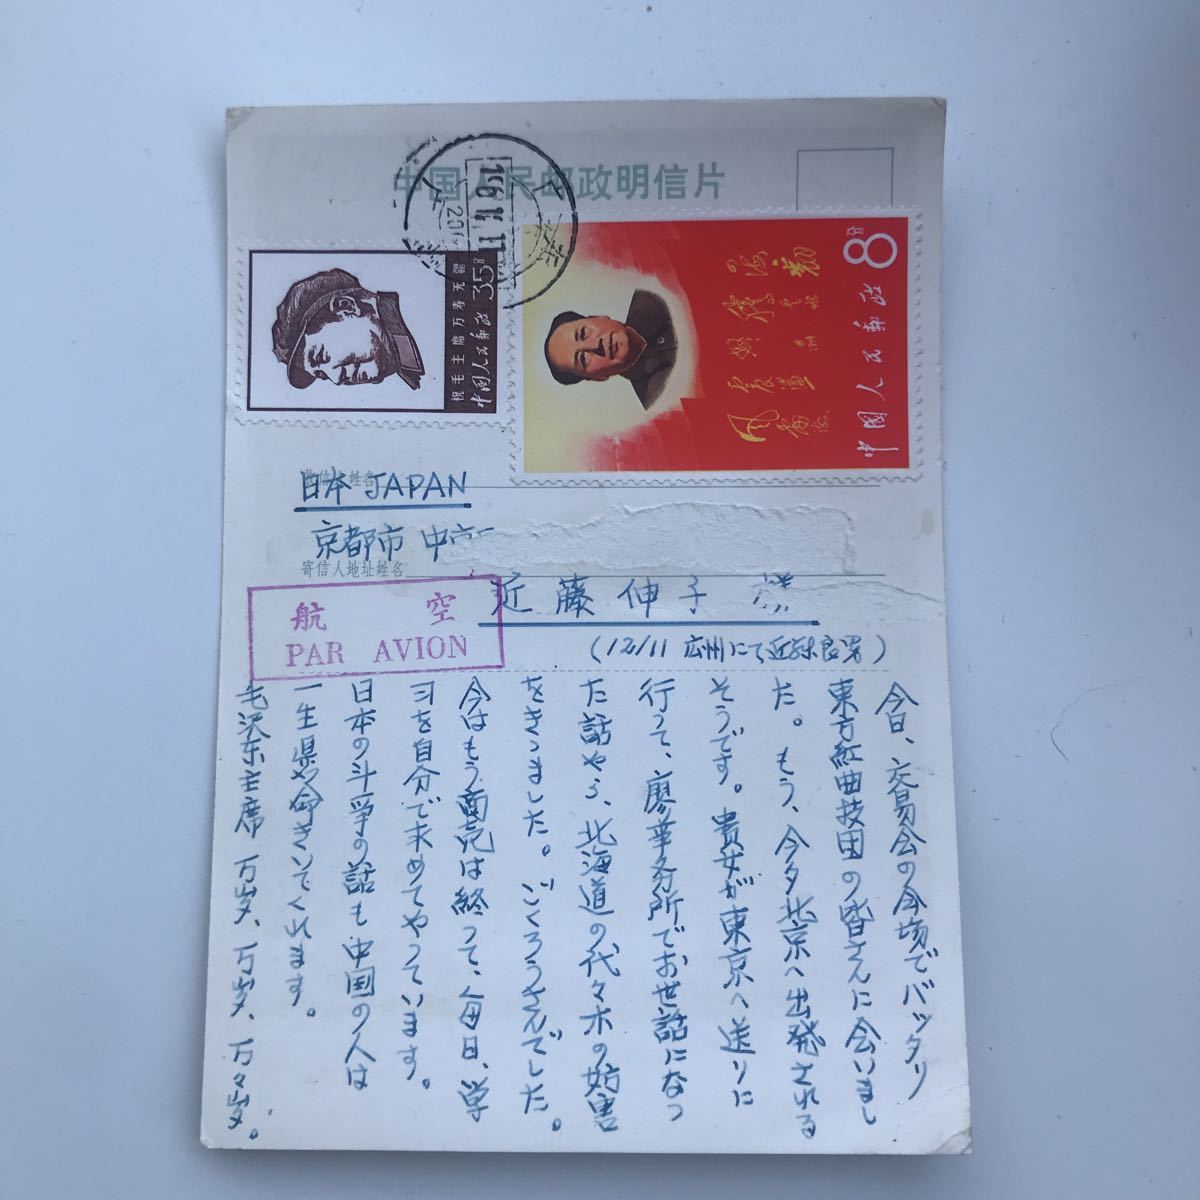 中国人民邮政明信片
祝毛主席万寿无疆
中国人民邮政 35分
8分
中国人民邮政
日本 JAPAN
京都市 中京
寄信人地址姓名
近藤伸子 様
航空
PAR AVION
(12/11 広州にて近藤良男)
今日、交易会の会場でバッタリ
東方紅曲技団の皆さんに会いまし
た。もう、今夕北京へ出発される
そうです。貴女が東京へ送りに
行って、廖事務所でお世話になっ
た話やら、北海道の代々木の妨害
をききました。ごくろうさんでした。
今はもう商売は終って、毎日、学
習を自分で求めてやっています。
日本の斗争の話も中国の人は
一生県命きいてくれます。
毛沢东主席 万岁、万岁、万々岁。